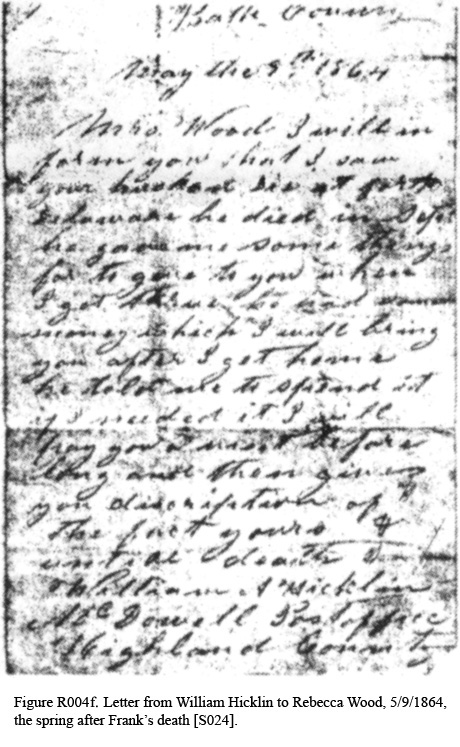 Bath County
May the 9th 1864
Mrs. Wood I will in
form you that I saw
your husband die at fort
Delaware he died in Sept
he gave me some things
for to give to you when
I get there he had some
money which I will bring
you after I get home
he told me to spend it
if I needed it I will
pay you a visit before
long and then give
you discription of
the fact yours
until death
William A Hicklin
McDowell Postoffice
Highland County
Figure R004f. Letter from William Hicklin to Rebecca Wood, 5/9/1864,
the spring after Frank's death [S024].